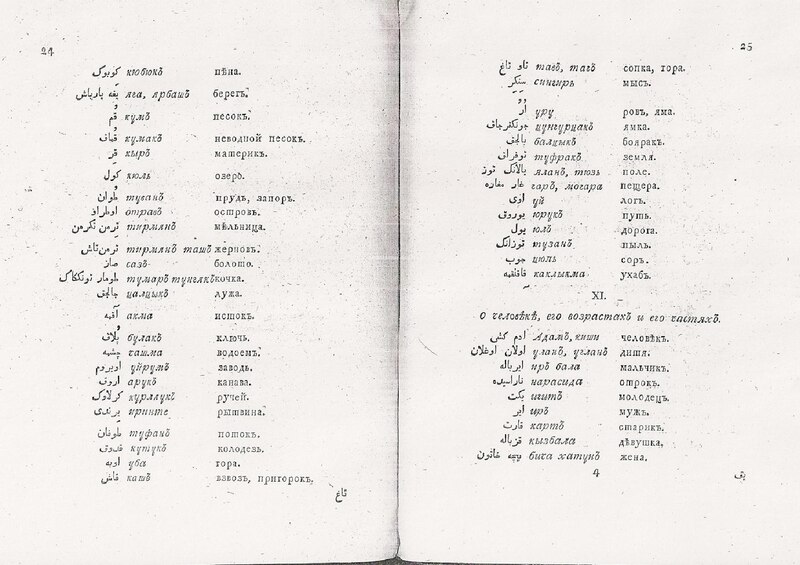 24
كوبوك кюбюкъ пѣна.
يقه يارباش яга, ярбашъ берегъ.
قم кумъ песокъ.
قماق кумакъ неводной песокъ.
قر кыръ материкъ.
كول кюль озеро.
طوان туванъ прудь, запоръ.
اوطراو отравъ островъ.
ترمن تكرمن тирмянъ мѣльница.
ترمن تاش тирмянъ ташъ жерновъ.
ساز сазъ болото.
тумаръ тунгакъ кочка.
чалчыкъ лужа.
اقمه акма истокъ.
بلاق булакъ ключь.
چشمه чашма водоемъ.
اويروم уйрумъ заводь.
اروق арукъ канава.
كرلاوك курллукъ ручей.
يرندى иринте рытвина.
طوفان туфанъ потокъ.
قدوق кутукъ колодезь.
اوبه уба гора.
قاش кашъ взвозъ, пригорокъ.
تاغ
25
تاو تاغ тавъ, тагъ сопка, гора.
سنكر сингирь мысъ.
اور уру ровъ, яма.
цунгурцакъ ямка.
بالچق балцыкъ бояракъ.
توفراق туфракъ земля.
يالانك توز яланъ, тюзь поле.
غار مغاره гаръ, могара пещера.
اوى уй логъ.
يوروق юрукъ путь.
يول юлъ дорога.
توزانك тузанъ пыль.
چوب цюпь соръ.
قاقلقمه каклыкма ухабъ.
XI.
О человѣкѣ, его возрастахъ и его частяхъ.
ادم كشى Адамъ, киши человѣкъ.
اولان اوغلان уланъ, угланъ дитя.
اير باله иръ бала мальчикъ.
نارسيده нарасида отрокъ.
يكت игитъ молодецъ.
اير иръ мужъ.
قارت картъ старикъ.
قزباله кызбала дѣвушка.
بيچه خاتون бича хатунъ жена.
4